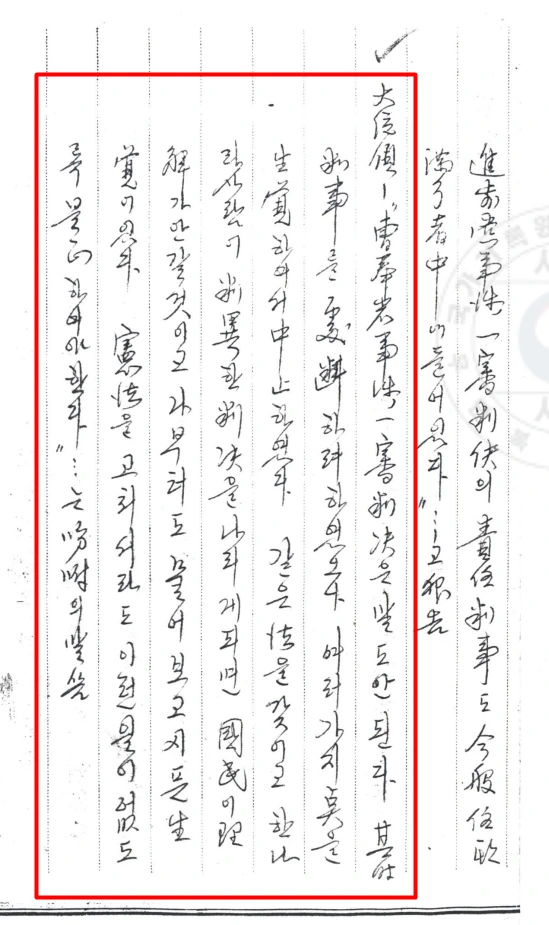 進步黨事件 一審判決의 責任判事도 今般 任期
滿了者中에 들어있다”…고 報告
大統領 – “曺奉岩事件 一審判決은 말도 안된다. 其時
判事를 處斷하려 하였으나 여러가지 點을
生覺하여서 中止하였다. 같은 法을 갖이고 한나
라사람이 判異한 判決을 나리게되면 國民이 理
解가 안갈것이고 나부터도 물어보고싶은 生
覺이있다. 憲法을 고쳐서라도 이런일이 없도
록 … 하여야한다”…는 吩咐의 말씀